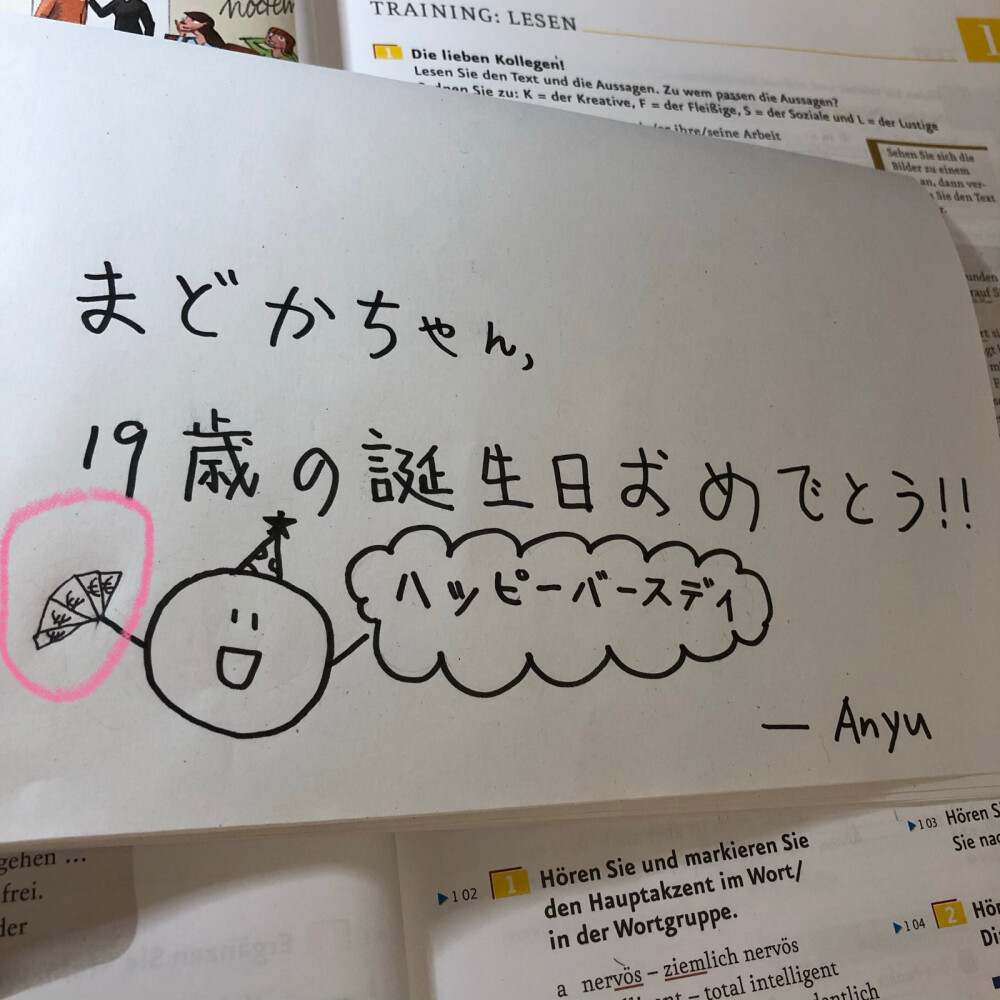 nochen
TRAINING: LESEN
1
1 Die lieben Kollegen!
Lesen Sie den Text und die Aussagen. Zu wem passen die Aussagen?
Sie zu: K = der Kreative, F = der Fleißige, S = der Soziale und L = der Lustige
ihre/seine Arbeit
Sehen Sie sich die
Bilder zu einem
an, dann ver-
Sie den Text
まどかちゃん,
19歳の誕生日おめでとう!!
ハッピーバースディ
— Anyu
gehen ...
frei.
der
▶102 1 Hören Sie und markieren Sie
den Hauptakzent im Wort/
in der Wortgruppe.
a nervös – ziemlich nervös
– total intelligent
▶103 Hören S
Sie nac
▶104 2 Hör
Di